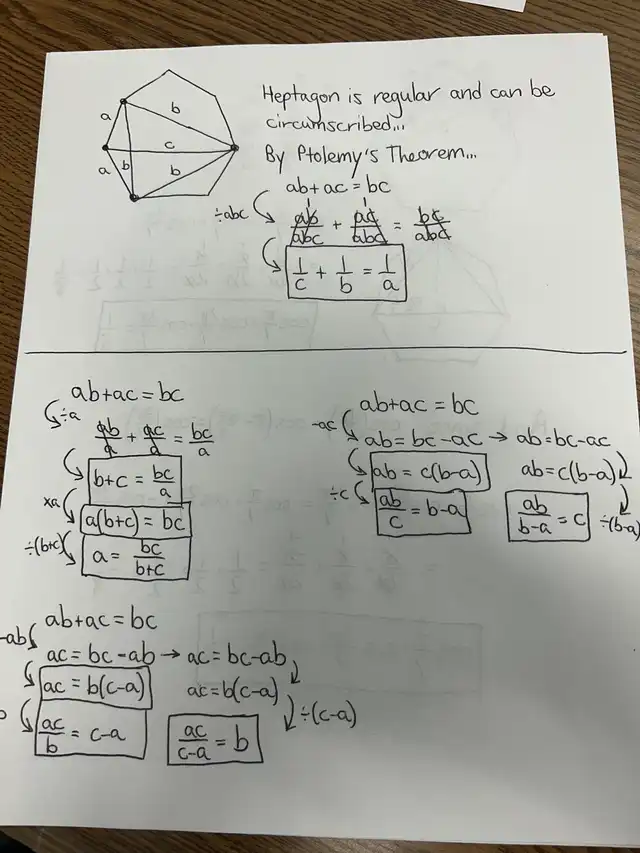 Heptagon is regular and can be
circumscribed...
By Ptolemy's Theorem...
a
b
c
a
b
b
ab+ac=bc
÷abc
ab/abc + ac/abc = bc/abc
1 1
1/c + 1/b = 1/a
ab+ac=bc
÷a
ab/a + ac/a = bc/a
b+c = bc/a
xa
a(b+c) = bc
÷(b+c)
a = bc/b+c
ab+ac=bc
-ac
ab=bc-ac → ab=bc-ac
ab = c(b-a)
ab=c(b-a)
÷c
ab/c = b-a
ab/b-a = c
÷(b-a)
ab+ac=bc
-ab
ac=bc-ab → ac=bc-ab
ac = b(c-a)
ac=b(c-a)
÷(c-a)
ac/b = c-a
ac/c-a = b